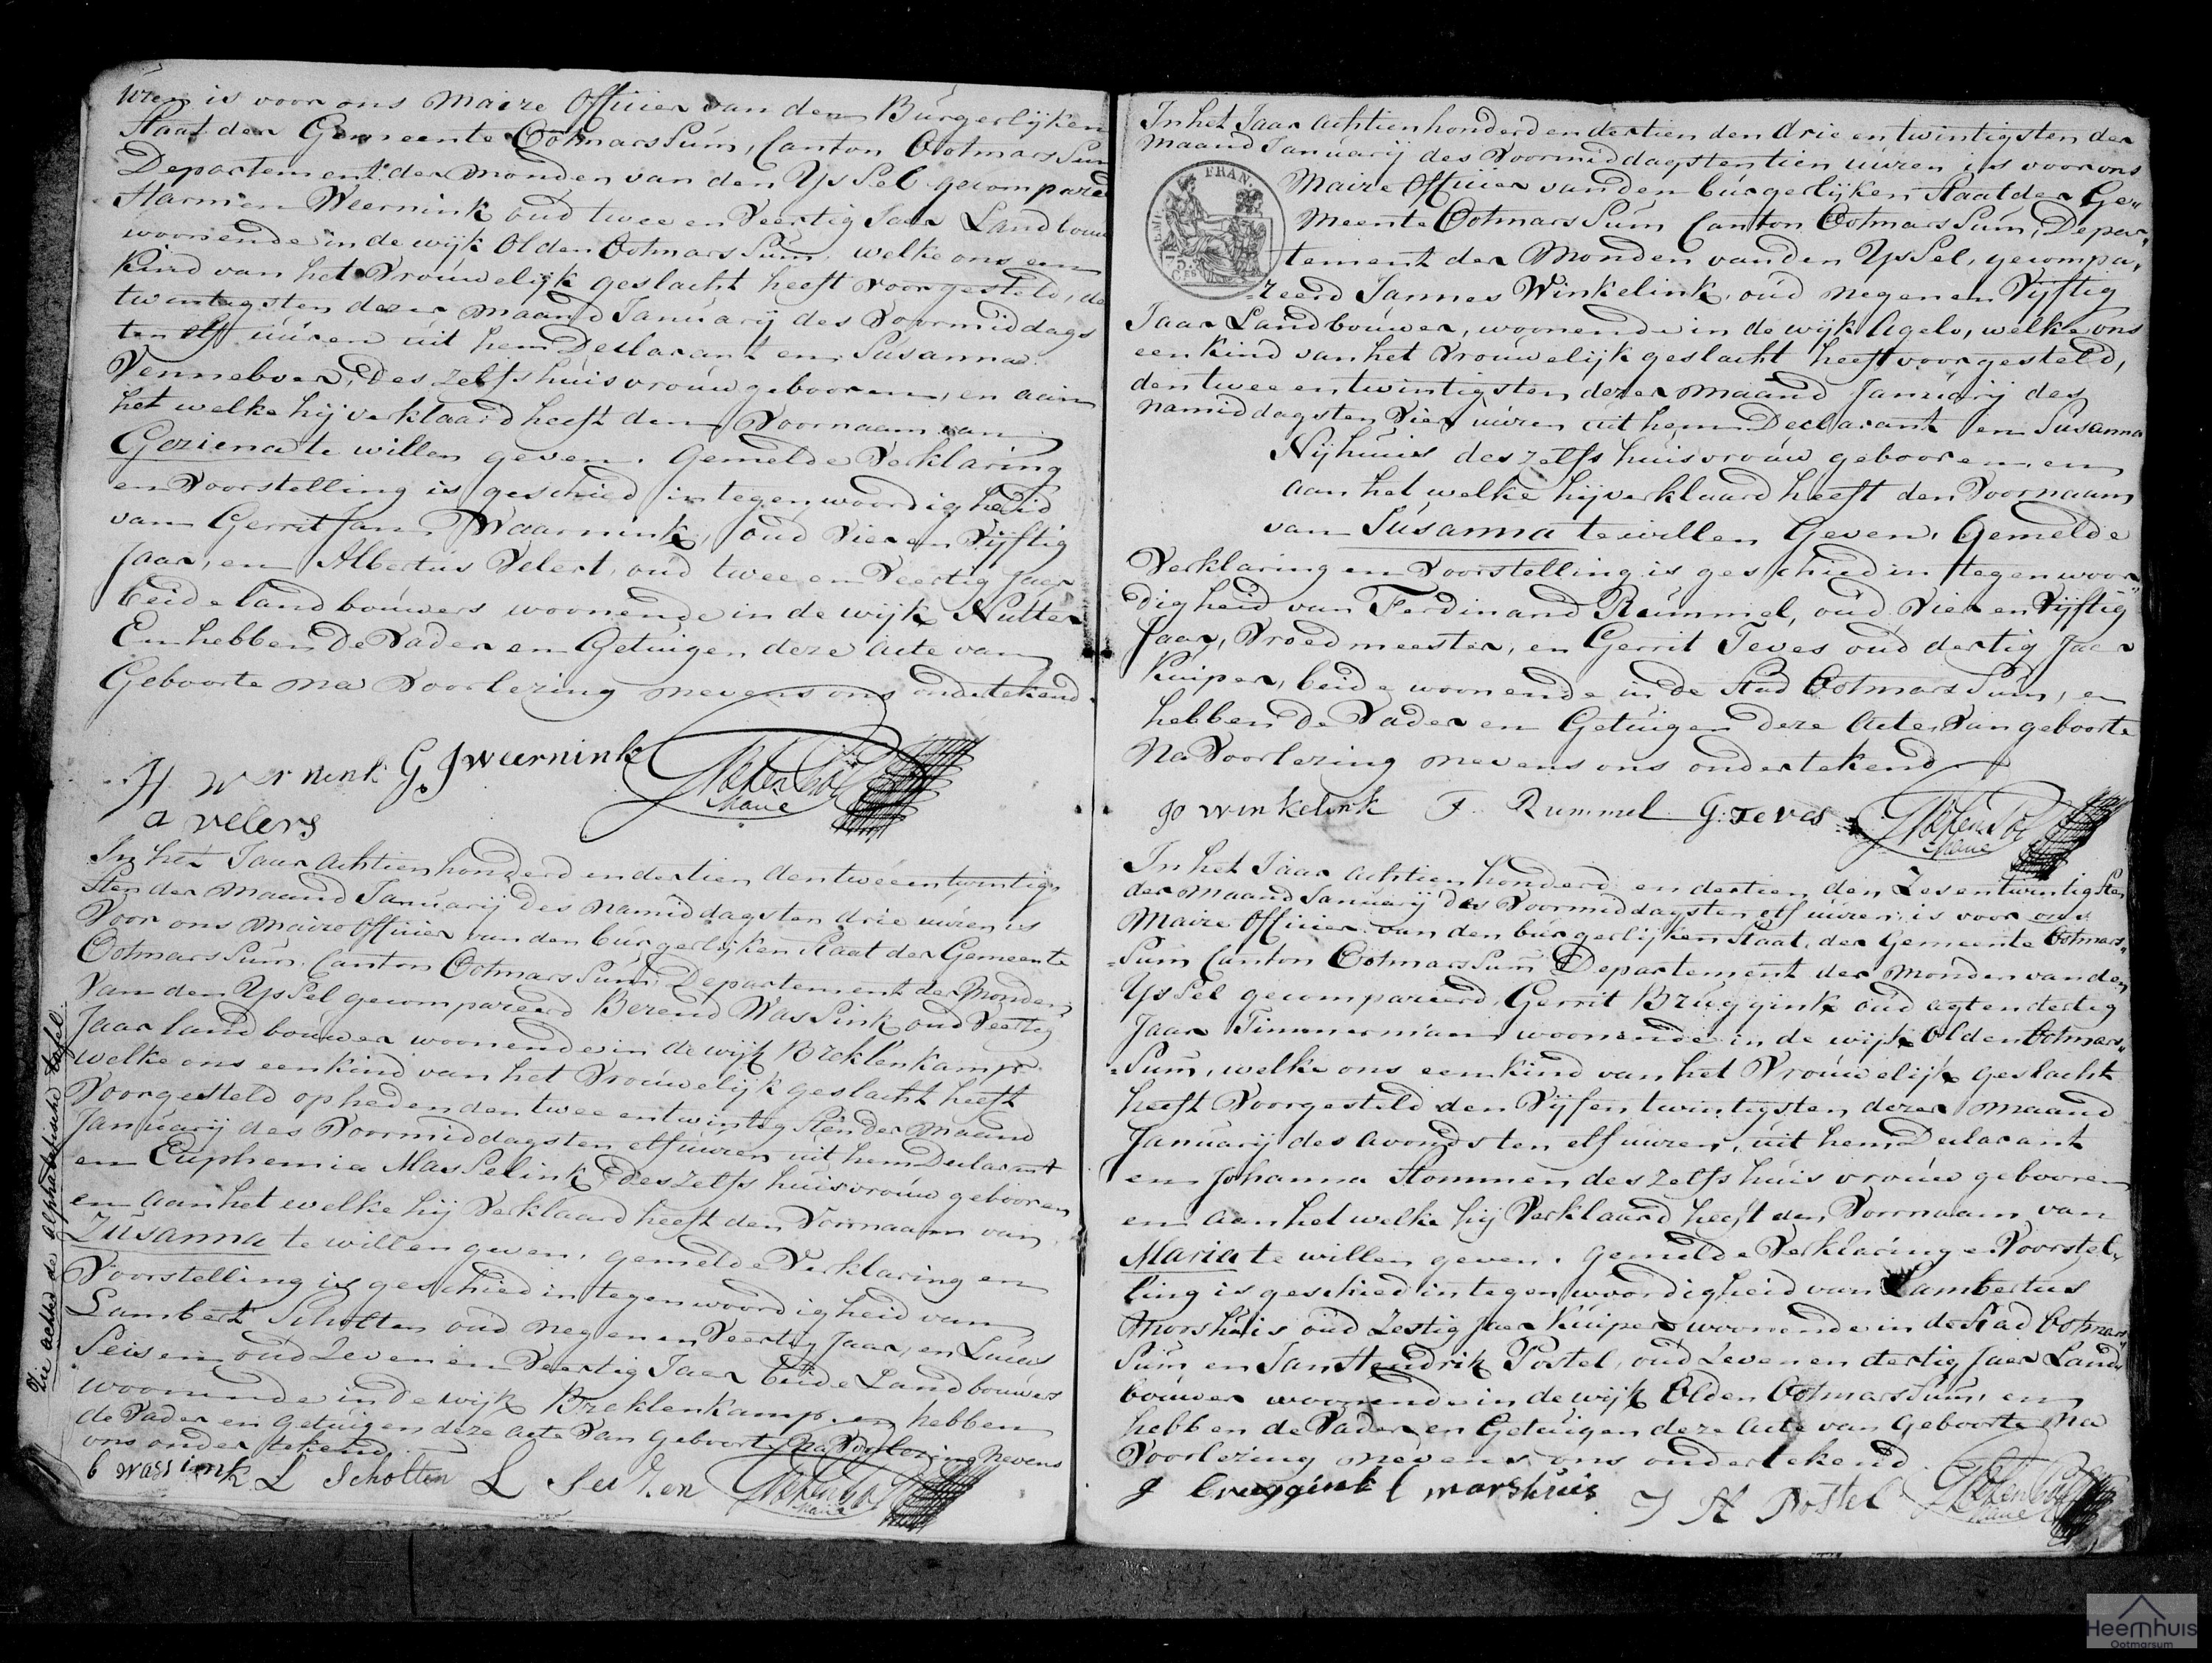 Uren is voor ons Maire Officier van den Burgerlijken
Staat der Gemeente Ootmarssum, Canton Ootmarssum
Departement der Monden van den Yssel gecompareerd
Harmen Weernink oud twee en Veertig Jaar Landbouwer
woonende in de wijk Olden Ootmarssum, welke ons een
Kind van het Vrouwelijk geslacht heeft voorgesteld, de
twintigsten dezer maand Januarij des Voormiddags
ten elf uuren uit hem Declarant en Susanna
Venneboer, des zelfs huisvrouw gebooren, en aan
het welke hij verklaard heeft den Voornaam van
Geziena te willen geven. Gemelde Verklaring
en Voorstelling is geschied in tegenwoordigheid
van Gerrit Jan Waarnink, oud Vier en Vijftig
Jaar, en Albertus Velert, oud twee en Veertig Jaar
beide landbouwers woonende in de wijk Nutter
En hebben De Vader en Getuigen deze acte van
Geboorte na Voorlezing nevens ons ondertekend.
H wernink G J weernink
Maire
a velers
In het Jaar Achtienhonderd en dertien den twee en twintig
sten der Maand Januarij des namiddags ten drie uuren is
Voor ons Maire Officier van den burgerlijken Staat der Gemeente
Ootmarssum, Canton Ootmarssum, Departement der Monden
Van den Yssel gecompareerd Berend Wassink oud Veertig
Jaar landbouwer woonende in de wijk Breklenkamp
welke ons een kind van het Vrouwelijk geslacht heeft
Voorgesteld op heden den twee en twintigsten der Maand
Januarij des Voormiddags ten elf uuren uit hem Declarant
en Euphemia Masselink, des zelfs huisvrouw gebooren
en aan het welke hij Verklaard heeft den Voornaam van
Zusanna te willen geven. gemelde Verklaring en
Voorstelling is geschied in tegenwoordigheid van
Lambert Scholten oud negen en Veertig Jaar, en Lucas
Seisen oud Zeven en Veertig Jaar beide Landbouwers
woonende in de wijk Breklenkamp, en hebben
de Vader en Getuigen deze acte Van Geboorte na Voorlezing Nevens
ons ondertekend.
b wassink L Scholten L
Maire
Zie achter de alphabetische tafel
In het Jaar Achtienhonderd en dertien den drie en twintigsten der
Maand Januarij des Voormiddags ten tien uuren is voor ons
FRAN.
Maire Officier van den burgerlijken Staat der Ge"
meente Ootmarssum Canton Ootmarssum, Depar"
tement der Monden van den Yssel, gecompa"
reerd Jannes Winkelink, oud negen en Vijftig
Jaar Landbouwer, woonende in de wijk Agelo, welke ons
een kind van het Vrouwelijk geslacht heeft voorgesteld,
den twee en twintigsten dezer maand Januarij des
namiddags ten Vier uuren uit hem Declarant en Susanna
Nijhuis des zelfs huisvrouw gebooren en
aan het welke hij verklaard heeft den Voornaam
van Susanna te willen Geven, Gemelde
Verklaring en Voorstelling is geschied in tegenwoor"
digheid van Ferdinand Rummel, oud Vier en Vijftig
Jaar, Vroedmeester, en Gerrit Teves oud dertig Jaar
Kuiper, beide woonende in de Stad Ootmarssum, en
hebben De Vader en Getuigen Deze Acte Van geboorte
Na Voorlezing nevens ons ondertekend
jo winkelink F. Rummel G: Teves
Maire
In het Jaar Achtienhonderd en dertien den Zes en twintigsten
der Maand Januarij des Voormiddags ten elf uuren is voor ons
Maire Officier van den burgerlijken Staat, der Gemeente Ootmars"
Sum Canton Ootmarssum Departement der Monden van den
Yssel gecompareerd, Gerrit Bruggink oud agt en dertig
Jaar Timmerman woonende in de wijk Olden Ootmars"
Sum, welke ons een kind van het Vrouwelijk geslacht
heeft Voorgesteld den Vijf en twintigsten dezer maand
Januarij des avonds ten elf uuren, uit hem Declarant
en Johanna Stommen des zelfs huisvrouw gebooren
en aan het welke hij Verklaard heeft den Voornaam van
Maria te willen geven. gemelde Verklaring en Voorstel"
ling is geschied in tegenwoordigheid van Lambertus
Morshuis oud Zestig Jaar Kuiper woonende in de Stad Ootmars"
Sum en Jan Hendrik Postel, oud Zeven en dertig Jaar Land"
bouwer woonende in de wijk Olden Ootmarssum, en
hebben de Vader en Getuigen deze acte van Geboorte Na
Voorlezing nevens ons ondertekend
g bruggink l morshuis J H Postel
Maire
Heemhuis
Ootmarsum